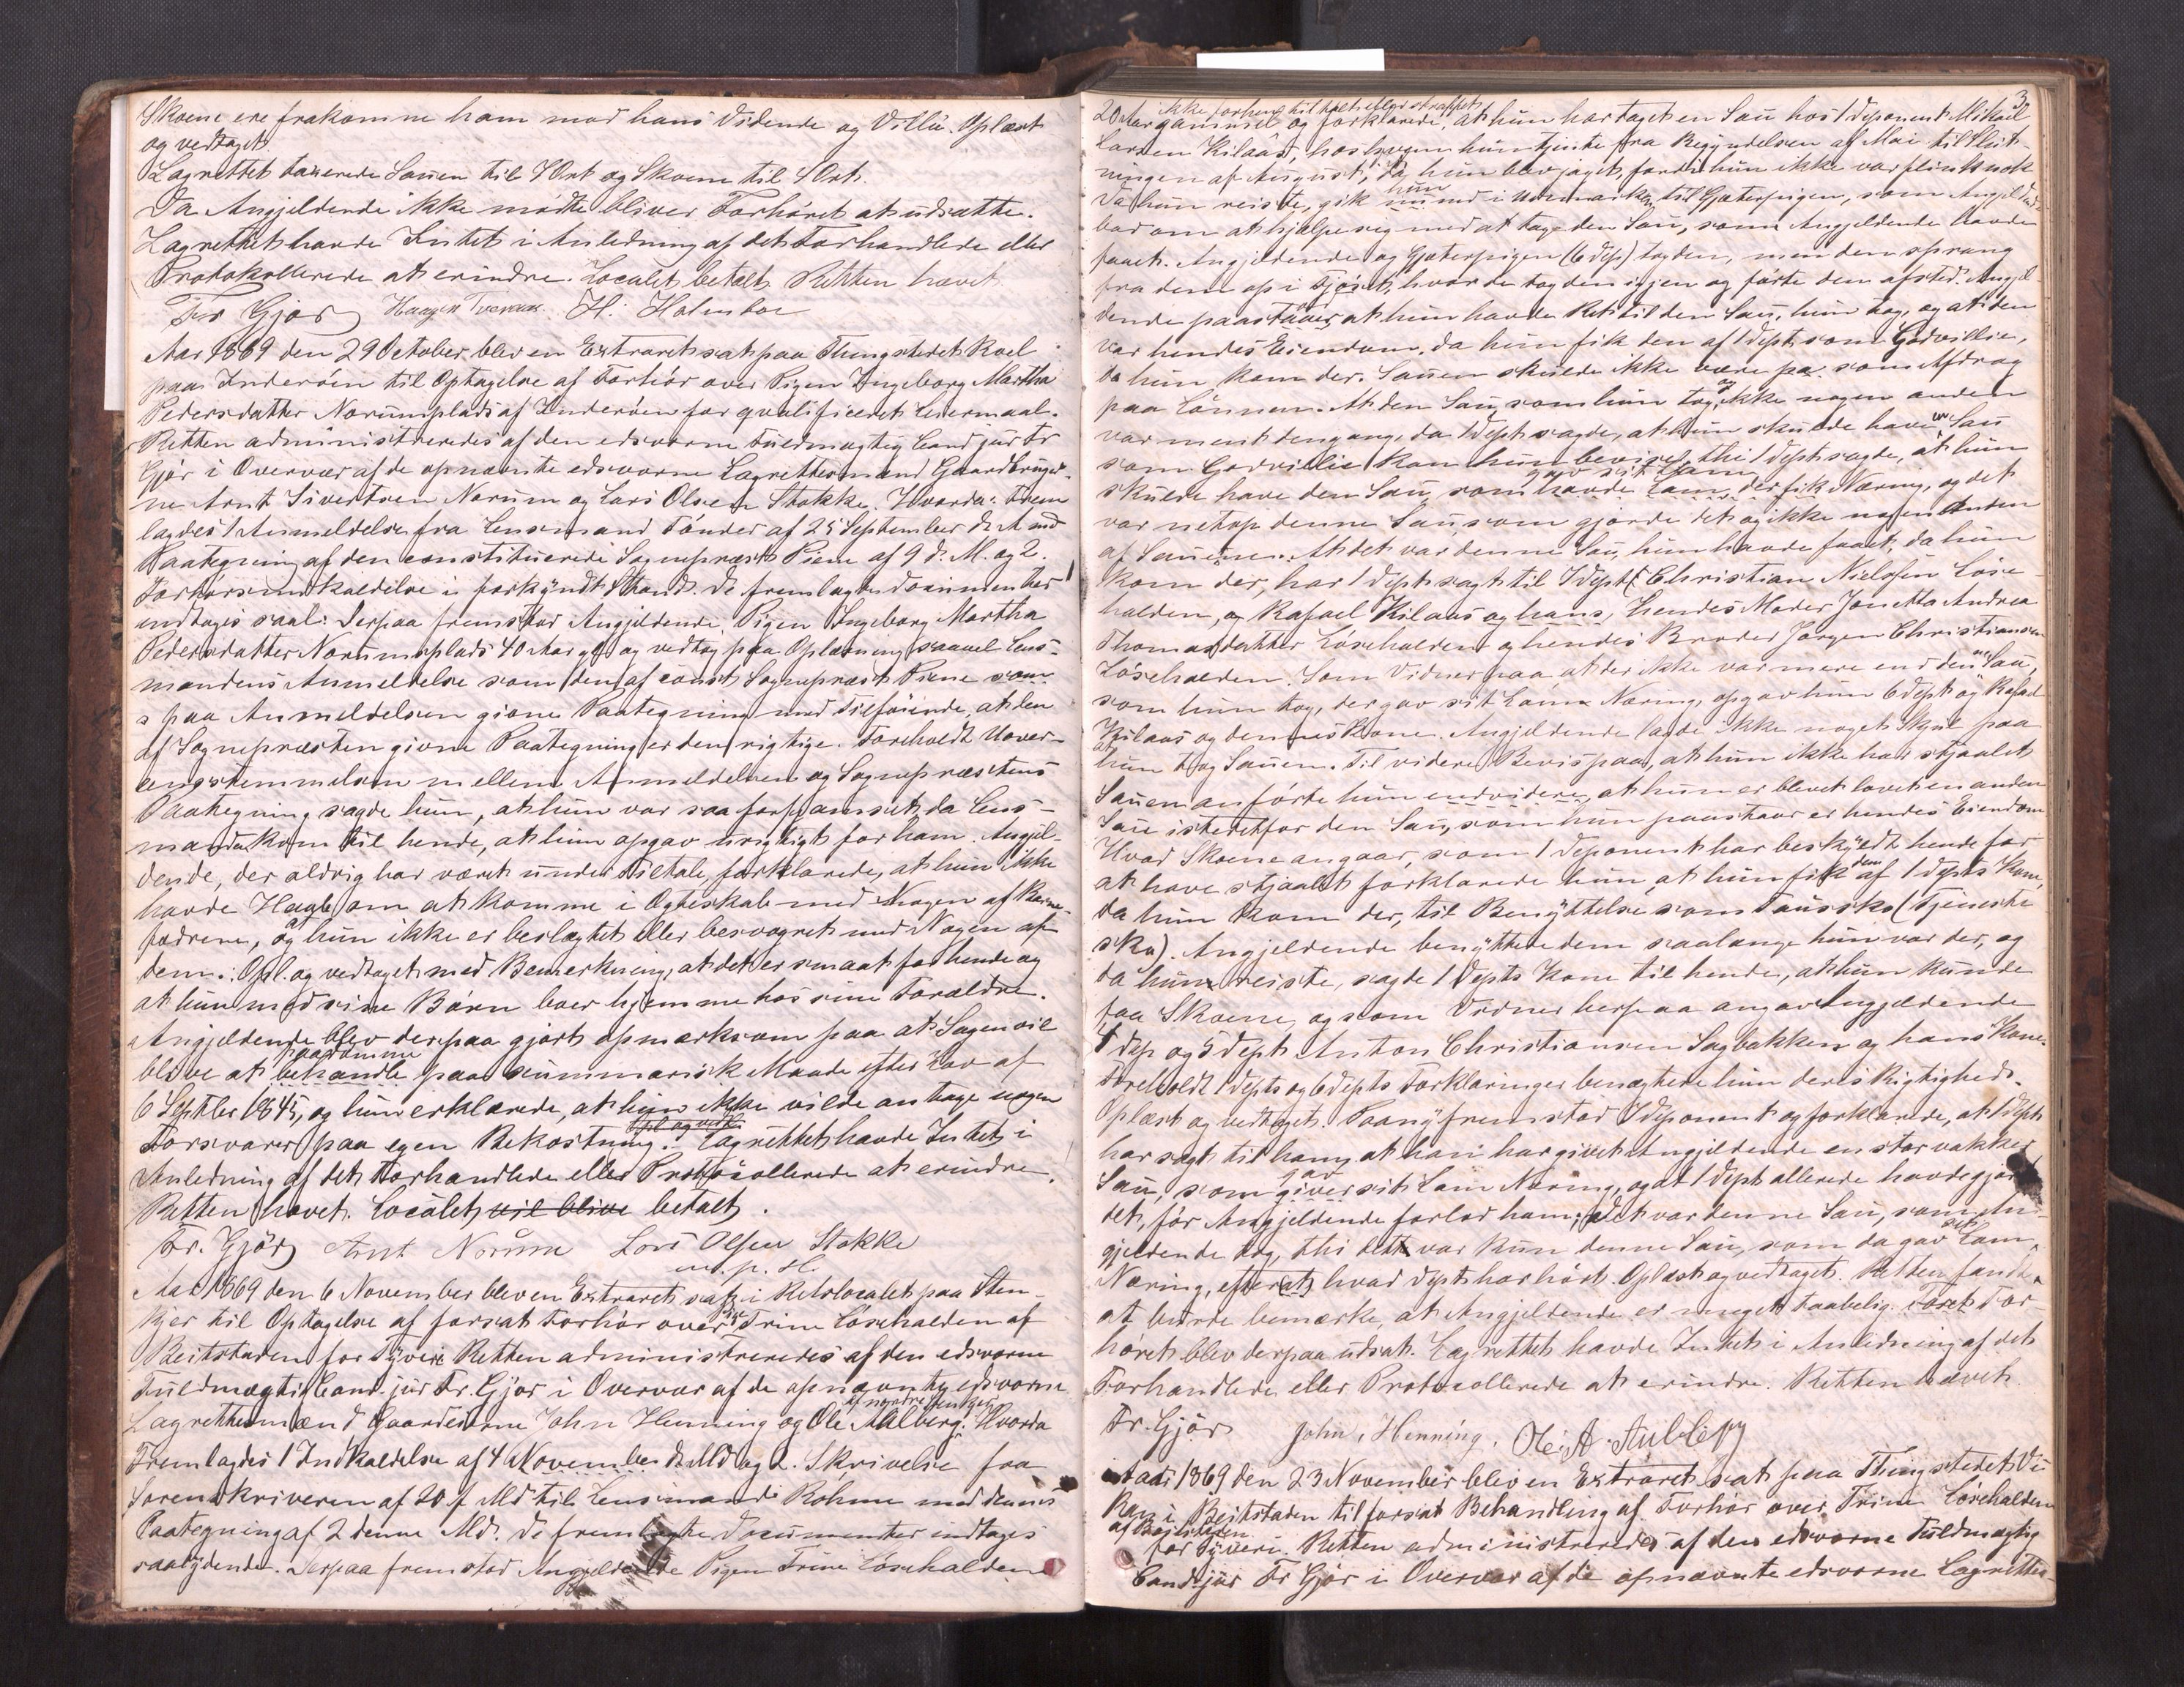 Skoene ere frakomne ham mod hans Vidende og Villie. Oplæst
og vedtaget.
Lagrettet taxerede Sauen til 7 Ort og Skoene til 4 Ort.
Da Angjeldende ikke mødte bliver Forhøret at udsætte.
Lagrettet havde Intet i Anledning af det Forhandlede eller
Protokollerede at erindre. Localet betalt. Retten hævet.
Fr Gjør H: Holmboe
Aar 1869 den 29 October blev en Extraret sat paa Thingstedet Roel
paa Inderøen til Optagelse af Forhør over Pigen Ingeborg Martha
Pedersdatter Norumsplads af Inderøen for qvalificeret Leiermaal.
Retten administreredes af den edsvorne Fuldmægtig Cand jur Fr
Gjør i Overvær af de opnævnte edsvorne Lagrettesmænd Gaardbruger-
ne Arnt Sivertsen Norum og Lars Olsen Stokke. Hvorda: Frem
lagdes 1 Anmeldelse fra Lensmand Tønder af 25 September d. A med
Paategning af den constituerede Sognepræst Piene af 9 d. M. og 2.
Forhørsindkaldelse i forkyndt Stand. De fremlagde documenter
indtages saal: Derpaa fremstod Angjeldende Pigen Ingeborg Martha
Pedersdatter Norumsplads 40 Aar gl og vedtog paa Oplæsning saavel Lens-
mandens Anmeldelse som den af const Sognepræst Piene som
paa Anmeldelsen givne Paategning med Tilføiende, at den
af Sognepræsten givne Paategning er den rigtige. Foreholdt Uover-
ensstemmelsen mellem Anmeldelsen og Sognepræstens
Paategning sagde hun, at hun var saa forfamset, da Lens-
manden kom til hende, at hun opgav urigtigt for ham. Angjel-
dende, der aldrig har været under Tiltale, forklarede, at hun ikke
havde Haab om at komme i Ægteskab med Nogen af Barne-
fædrene, og at hun ikke er beslægtet eller besvogret med Nogen af
dem. Opl. og vedtaget med Bemerkning, at det er smaat for hende og
at hun med sine Børn boer hjemme hos sine Forældre.
Angjeldende blev derpaa gjort opmærksom paa at Sagen vil
paadømme
blive at behandle paa summarisk Maade efter Lov af
6 Septbr 1845, og hun erklærede, at hun ikke vilde antage nogen
Opl og vedt.
Forsvarer paa egen Bekostning. Lagrettet havde Intet i
Anledning af det Forhandlede eller Protocollerede at erindre.
Retten hævet. Localet vil blive betalt.
Fr. Gjør Arnt Norum Lars Olsen Stokke
m. p. H.
Aar 1869 den 6 November blev en Extraret sat i Retslocalet paa Sten-
kjer til Optagelse af forsat Forhør over Trine Løsehalden af
Beitstaden for Tyveri. Retten administreredes af den edsvorne
Fuldmægtig Cand. jur Fr. Gjør i Overvær af de opnævnte edsvorne
Lagrettesmænd Gaardeierne John Henning og Ole Aalberg. Hvorda
Fremlagdes 1 Indkaldelse af 4 November d. Md og 2. Skrivelse fra
Sorenskriveren af 20 f Md til Lensmand Rohme med dennes
Paategning af 2 denne Md. De fremlagte Documenter indtages
saalydende. Derpaa fremstod Angjeldende Pigen Trine Løsehalden
3
ikke forhen tiltalt eller straffet
20 Aar gammel og forklarede, at hun har taget en Sau hos 1 deponent Mikael
Larsen Kilaas, hos hvem hun tjente fra Begyndelsen af Mai til Slut-
ningen af August, da hun bevjaget, fordi hun ikke var flink nok
hun
Da hun reiste, gik hun ned i Udmarken til Gjæterpigen, som Angjeld
bad om at hjælpe sig med at tage den Sau, som Angjeldende havde
faaet. Angjeldende og Gjæterpigen (6 dep) tog den, men den sprang
fra dem op i Fjøset, hvor de tog den igjen og førte den afsted. Angjel-
dende paastaaer, at hun havde Ret til den Sau, hun tog, og at den
var hendes Eiendom, da hun fik den af 1 dept som Godvillie,
da hun kom der. Sauen skulde ikke være paa som Afdrag
paa Lønnen. At den Sau, som hun tog, og ikke nogen anden
var ment dengang, da 1 dept sagde, at hun skulde have en Sau
som Godvillie kan hun bevise, thi 1 dept sagde, at hun
gav sit Lam
skulde have den Sau, som havde Lam, der fik Næring, og det
var netop denne Sau, som gjorde det og ikke nogen Anden
af Sauene. At det var denne Sau, hun havde faaet, da hun
kom der, har 1 dept sagt til 7 dept (Christian Nielssen Løse-
halden, og Rafael Kilaas og hans, hendes Moder Jonetta Andrea
Thomasdatter Løsehalden og hendes Broder Jørgen Christiansen
Løsehalden. Som Vidner paa, at der ikke var mere end den ene Sau,
som hun tog, der gav sit Lam Næring, opgav hun 6 dept og Rafael
Kilaas og dennes Kone. Angjeldende lagde ikke noget Skjul paa
at hun tog Sauen. Til videre Bevis paa, at hun ikke har stjaalet
Sauen anførte hun endvidere, at hun er blevet lovet en anden
Sau istedetfor den Sau, som hun paastaar er hendes Eiendom
Hvad Skoene angaar, som 1 deponent har beskyldt hende for
at have stjaalet forklarede hun, at hun fik dem af 1 depts Kone,
da hun kom der, til Benyttelse som Fausko (Tjeneste
sko). Angjeldende benyttede dem saalænge hun var der, og
da hun reiste, sagde 1 depts Kone til hende, at hun kunde
faa Skoene, og som Vidner herpaa angav Angjeldende
dep og 5 dept Anton Christiansen Sagbakken og hans Kone.
Foreholdt 1 depts og 6 depts Forklaringer benægtede hun deres Rigtighed.
Oplæst og vedtaget. Paany fremstod 7 deponent og forklarede, at 1 dept
har sagt til ham, at han har givet Angjeldende en stor vakker
gav
Sau, som giver sit Lam Næring, og at 1 dept allerede havde gjort
det, før Angjeldende forlod ham; at det var denne Sau, som An-
gjeldende tog, thi det var kun denne Sau, som da gav sit Lam
Næring, efter hvad dept har hørt. Oplæst og vedtaget. Retten fandt
at burde bemærke, at Angjeldende er meget taabelig. For-
høret blev derpaa udsat. Lagrettet havde Intet i Anledning af det
Forhandlede eller Protocollerede at erindre. Retten hævet.
Fr. Gjør John Henning. Ole A. Aalberg
Aar 1869 den 23 November blev en Extraret sat paa Thingstedet Vi
i Beitstaden til forsat Behandling af Forhør over Trine Løsehalden
af Beitstaden
for Tyveri. Retten administreredes af den edsvorne Fuldmægtig
Cand jur Fr Gjør i Overvær af de opnævnte edsvorne Lagrettes-